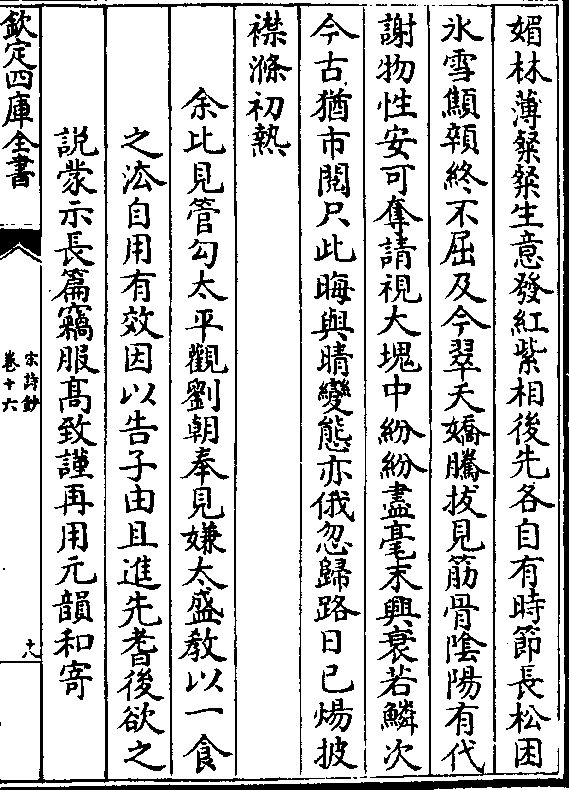 媚林薄粲粲生意發紅紫相後先各自有時節長松困
氷雪顦顇終不屈及今翠夭嬌騰拔見筋骨陰陽有代
謝物性安可奪請視大塊中紛紛盡毫末興衰若鱗次
今古猶市閲只此晦與晴變態亦俄忽歸路日已煬披
襟滌初熱
余比見管勾太平觀劉朝奉見嫌太盛教以一食
之法自用有效因以告子由且進先耆後欲之
説蒙示長篇竊服髙致謹再用元韻和寄
欽定四庫全書
宋詩鈔
卷十六
十九